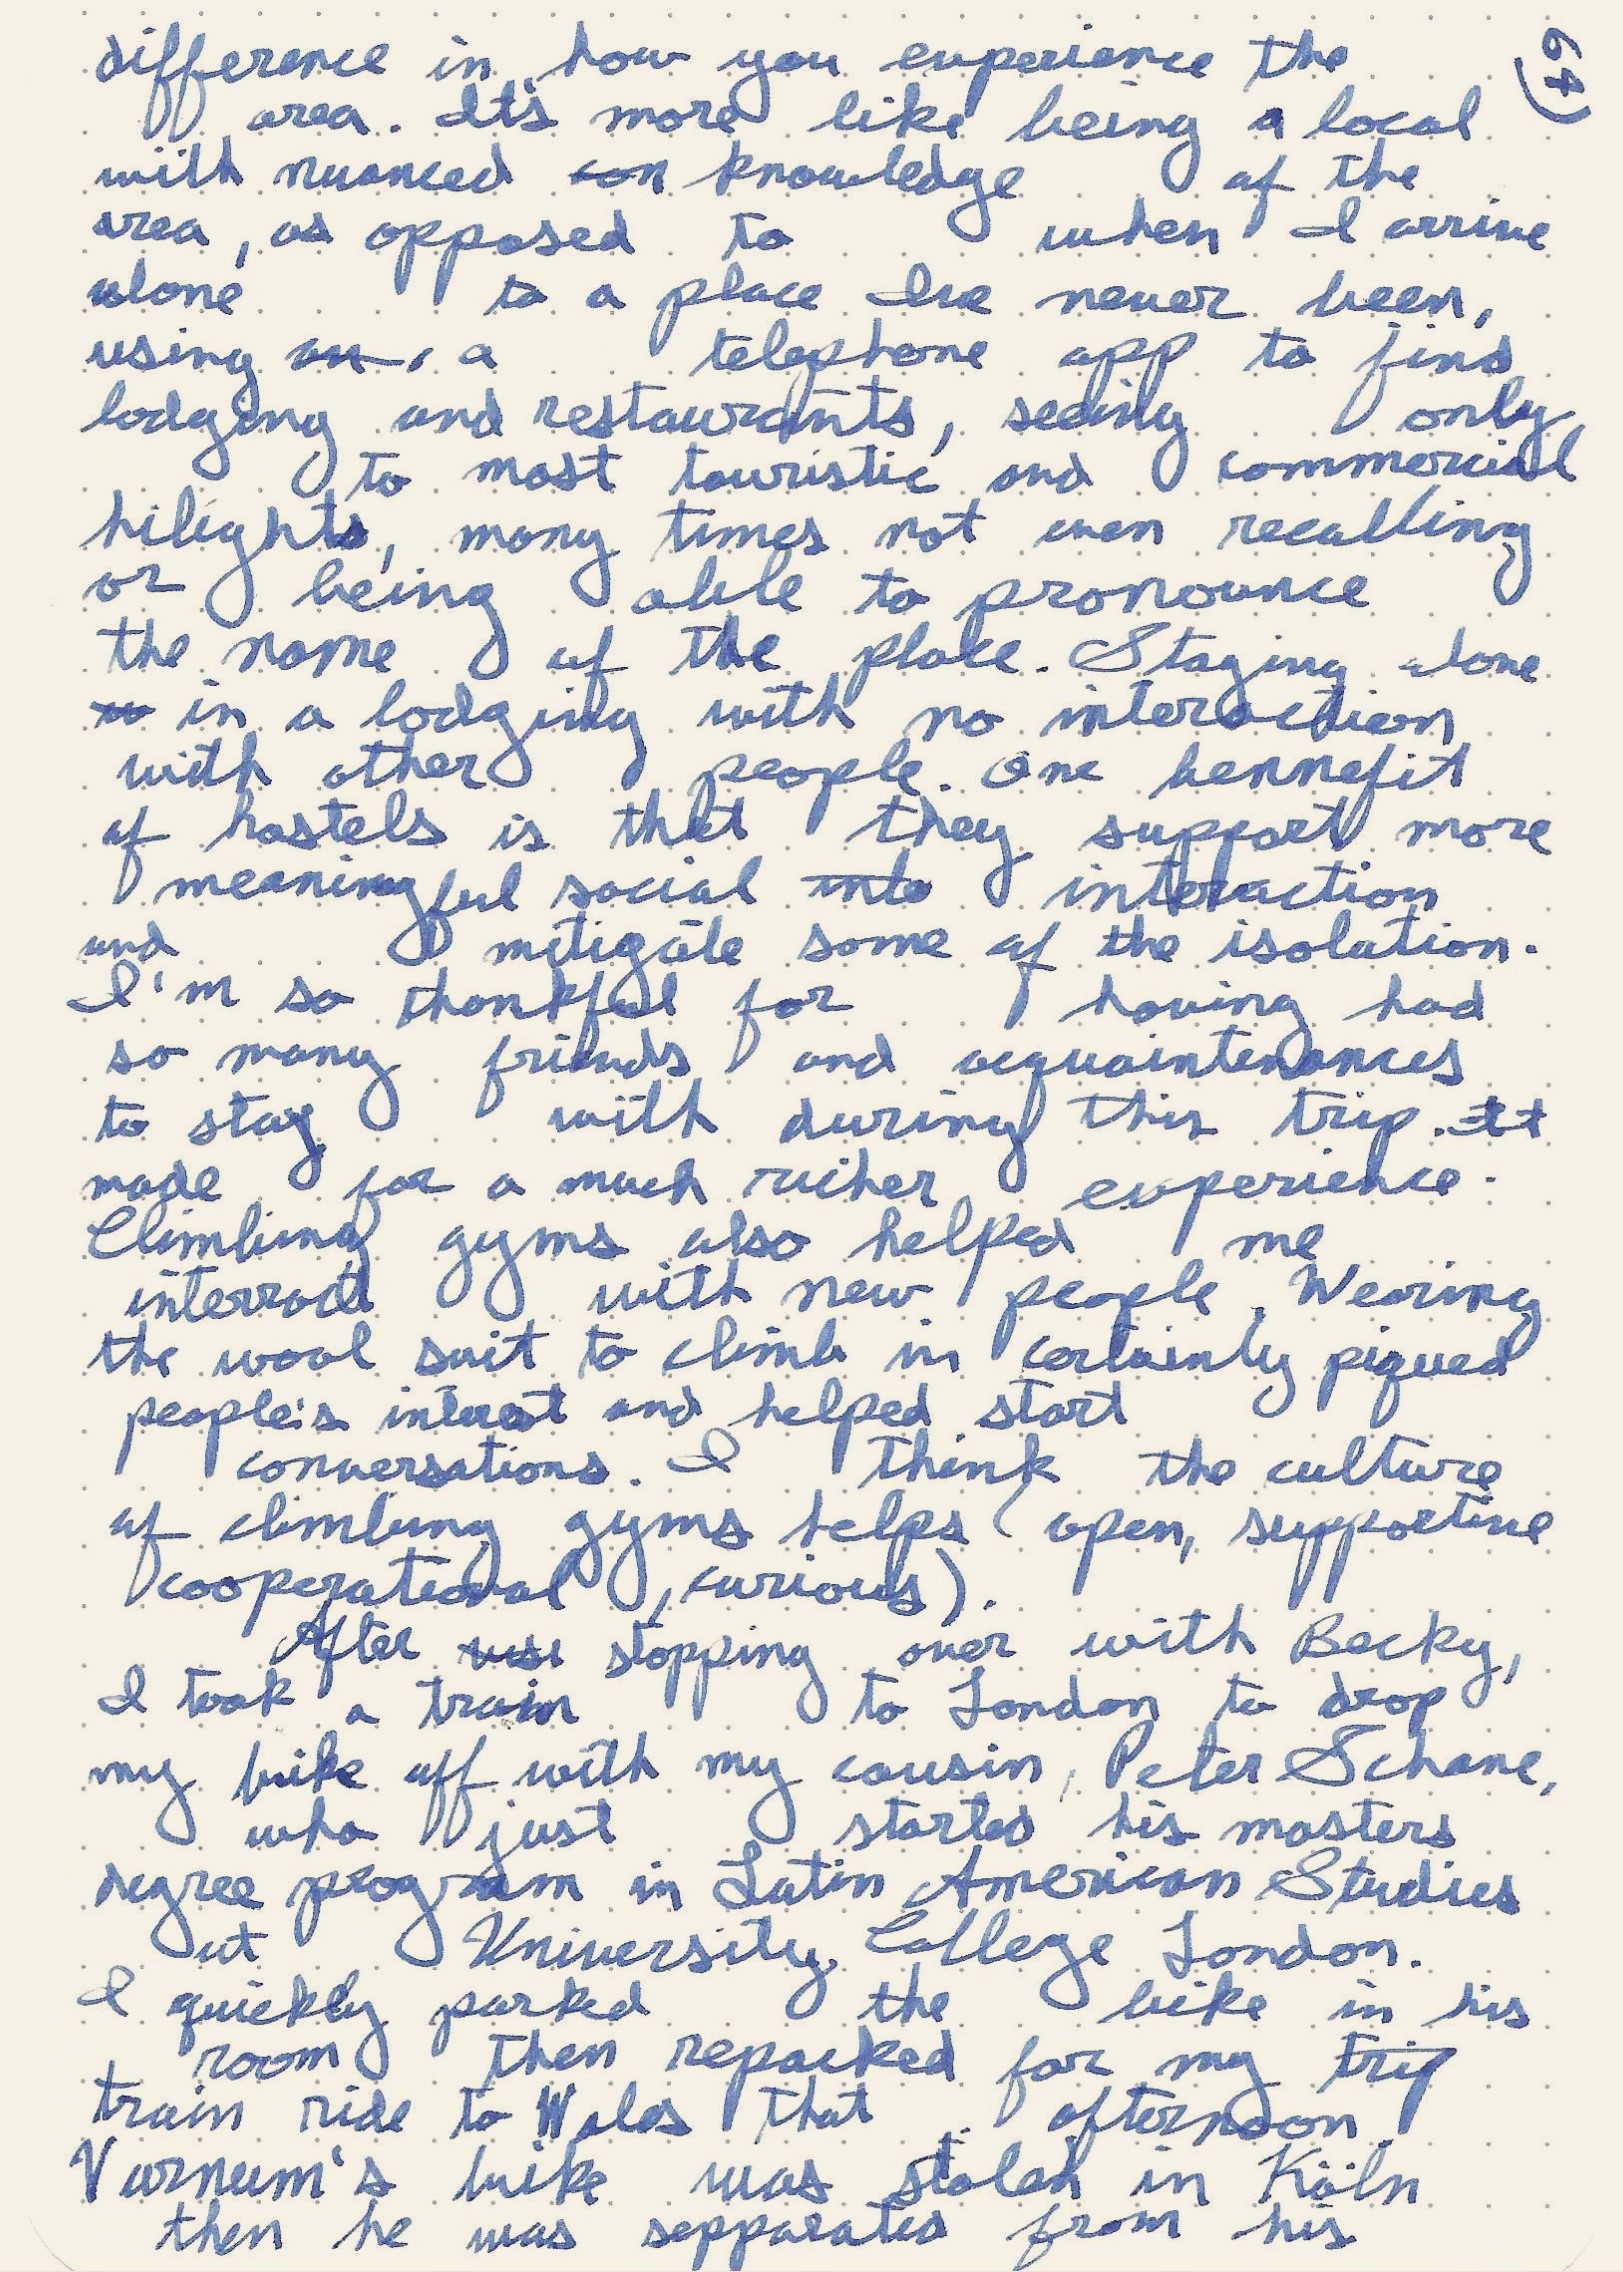 difference in how you experience the
area. It's more like being a local
with nuanced con knowledge of the
area, as opposed to when I arrive
alone to a place Ive never been,
using an, a telephone app to find
lodging and restaurants, seeing only
to most touristic and commercial
hilights, many times not even recalling
or being able to pronounce
the name of the place. Staying alone
in a lodging with no interaction
with other people. One bennefit
of hostels is that they support more
meaningful social inte interaction
and mitigate some of the isolation.
I'm so thankful for having had
so many friends and acquaintenances
to stay with during this trip. It
made for a much richer experience.
Climbing gyms also helped me
interract with new people. Wearing
the wool suit to climb in certainly piqued
people's interest and helped start
conversations. I think the culture
of climbing gyms helps (open, supportive
cooperational, curious).
After visi stopping over with Becky,
I took a train to London to drop
my bike off with my cousin, Peter Schane,
who just started his masters
degree program in Latin American Studies
at University College London.
I quickly parked the bike in his
room then repacked for my trip
train ride to Wales that afternoon.
Varnum's bike was stolen in Köln
then he was sepparated from his